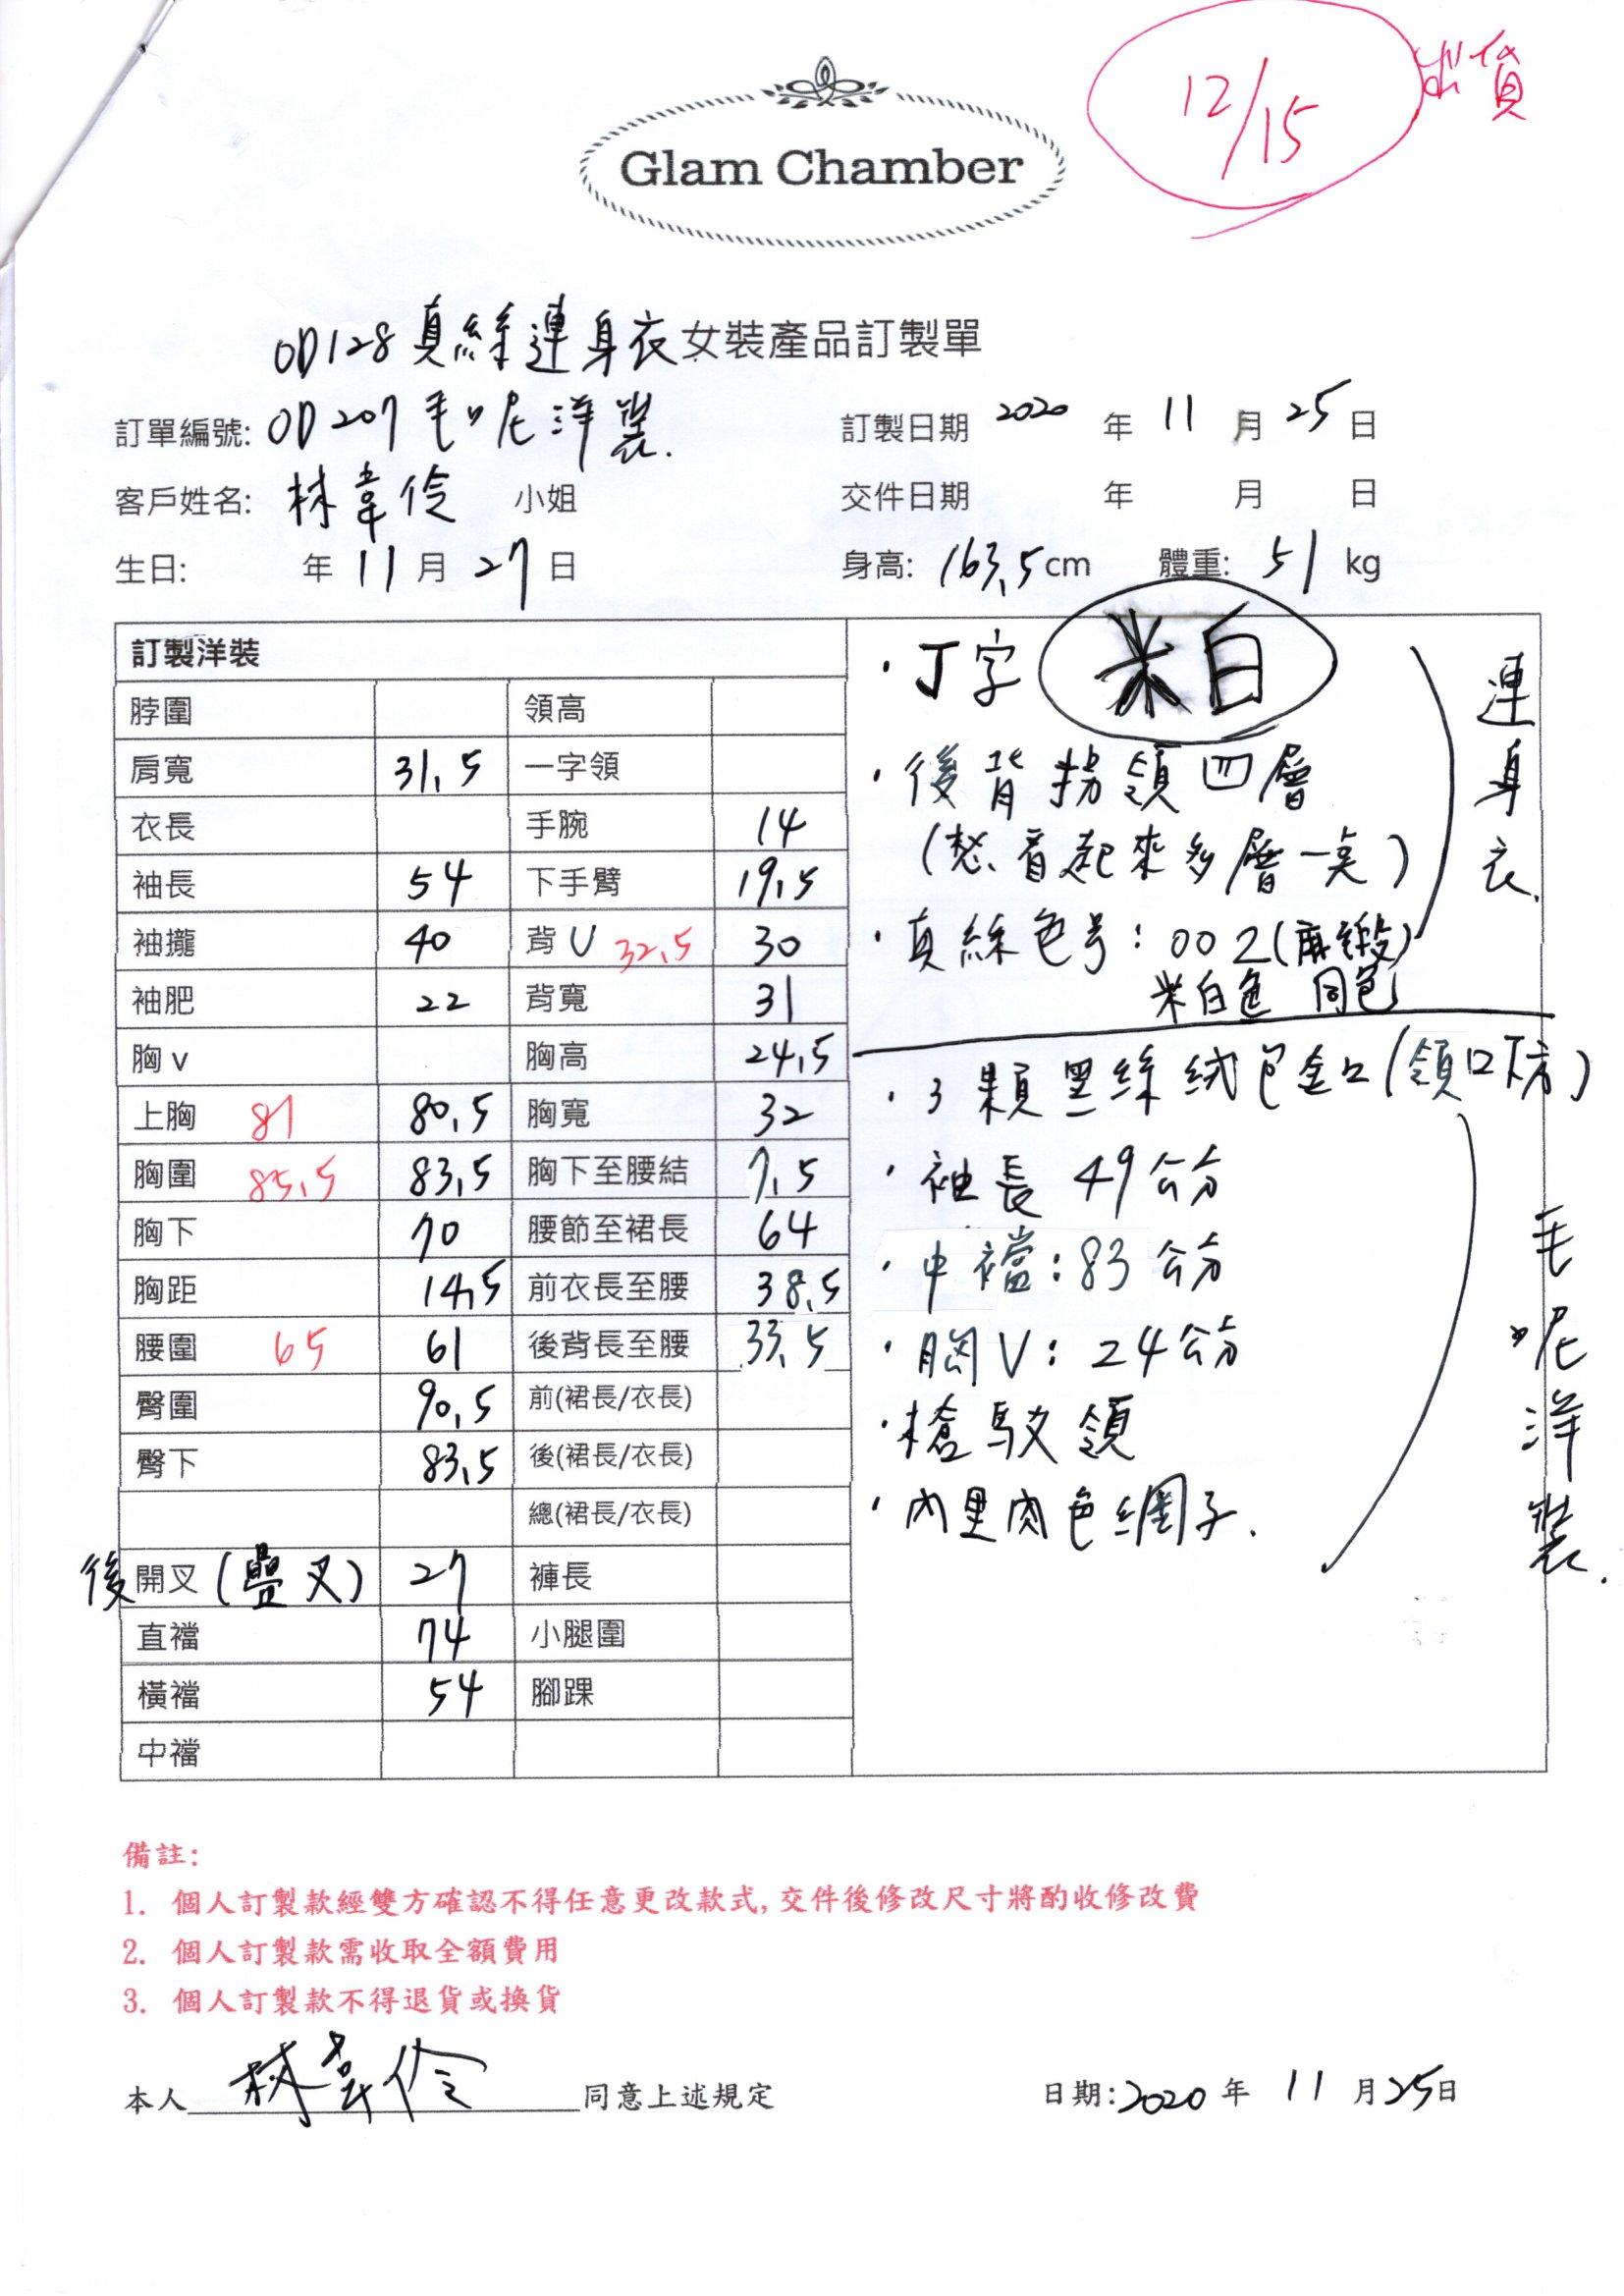 12/15 出貨
Glam Chamber
OD128 真絲連身衣 女裝產品訂製單
訂單編號: OD207 毛呢洋裝. 訂製日期 2020 年 11 月 25 日
客戶姓名: 林韋伶 小姐 交件日期 年 月 日
生日: 年 11 月 27 日 身高: 163.5 cm 體重: 51 kg
訂製洋裝
脖圍 領高
肩寬 31.5 一字領
衣長 手腕 14
袖長 54 下手臂 19.5
袖攏 40 背U 32.5 30
袖肥 22 背寬 31
胸v 胸高 24.5
上胸 81 80.5 胸寬 32
胸圍 85.5 83.5 胸下至腰結 7.5
胸下 70 腰節至裙長 64
胸距 14.5 前衣長至腰 38.5
腰圍 65 61 後背長至腰 33.5
臀圍 90.5 前(裙長/衣長)
臀下 83.5 後(裙長/衣長)
總(裙長/衣長)
後 開叉 (疊叉) 27 褲長
直襠 74 小腿圍
橫襠 54 腳踝
中襠
·丁字 米白
·後背 領四層
( 看起來多層一點)
·真絲色号: 002(麻緞)
米白色 同色
連身衣.
·3顆黑絲絨包釦(領口下方)
·袖長 49公分
·中襠: 83公分
·胸V: 24公分
·槍駁領
·內里肉色網子.
毛呢洋裝.
備註:
1. 個人訂製款經雙方確認不得任意更改款式, 交件後修改尺寸將酌收修改費
2. 個人訂製款需收取全額費用
3. 個人訂製款不得退貨或換貨
本人 林韋伶 同意上述規定 日期: 2020 年 11 月 25 日